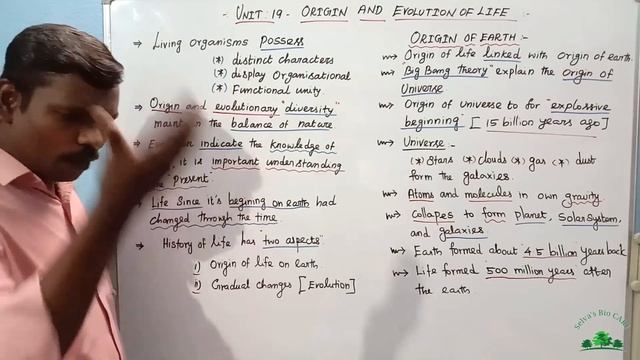 - UNIT: 19 - ORIGIN AND EVOLUTION OF LIFE :-
⇒ Living Organisms Possess
(*) distinct characters
(*) display Organisational
(*) Functional unity.
⇒ Origin and evolutionary "diversity"
the balance of nature
indicate the knowledge of
it is important understanding
the "Present"
⇒ Life Since it's begining on earth had
changed through the time.
⇒ History of life has "two aspects"
i) Origin of life on earth
ii) Gradual changes [Evolution]
ORIGIN OF EARTH :-
Origin of life linked with origin of earth.
"Big Bang theory" explain the Origin of
Universe
Origin of Universe to for "explossive
beginning" [15 billion years ago]
Universe :-
(*) Stars (*) clouds (*) gas (*) dust
form the galaxies.
Atoms and molecules in own gravity
Collapses to form planet, Solarsystem,
and galaxies
Earth formed about 4.5 billion years back
Life formed 500 million years after
the earth
Selva's Bio CARE